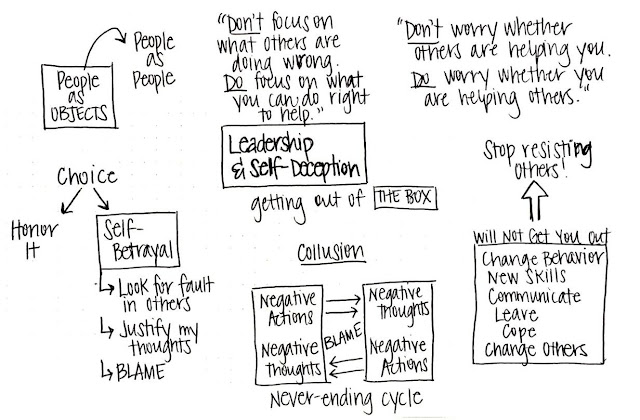 People
as
OBJECTS
People
as
People
"Don't focus on
what others are
doing wrong.
Do focus on what
you can do right
to help."
"Don't worry whether
others are helping you.
Do worry whether you
are helping others."
Leadership
& Self-Deception
getting out of THE BOX
Choice
Honor
It
Self-
Betrayal
Look for fault
in others
Justify my
thoughts
BLAME
Collusion
Negative
Actions
Negative
Thoughts
BLAME
Negative
Thoughts
Negative
Actions
Never-ending cycle
Stop resisting
others!
Will Not Get You Out
Change Behavior
New Skills
Communicate
Leave
Cope
Change Others